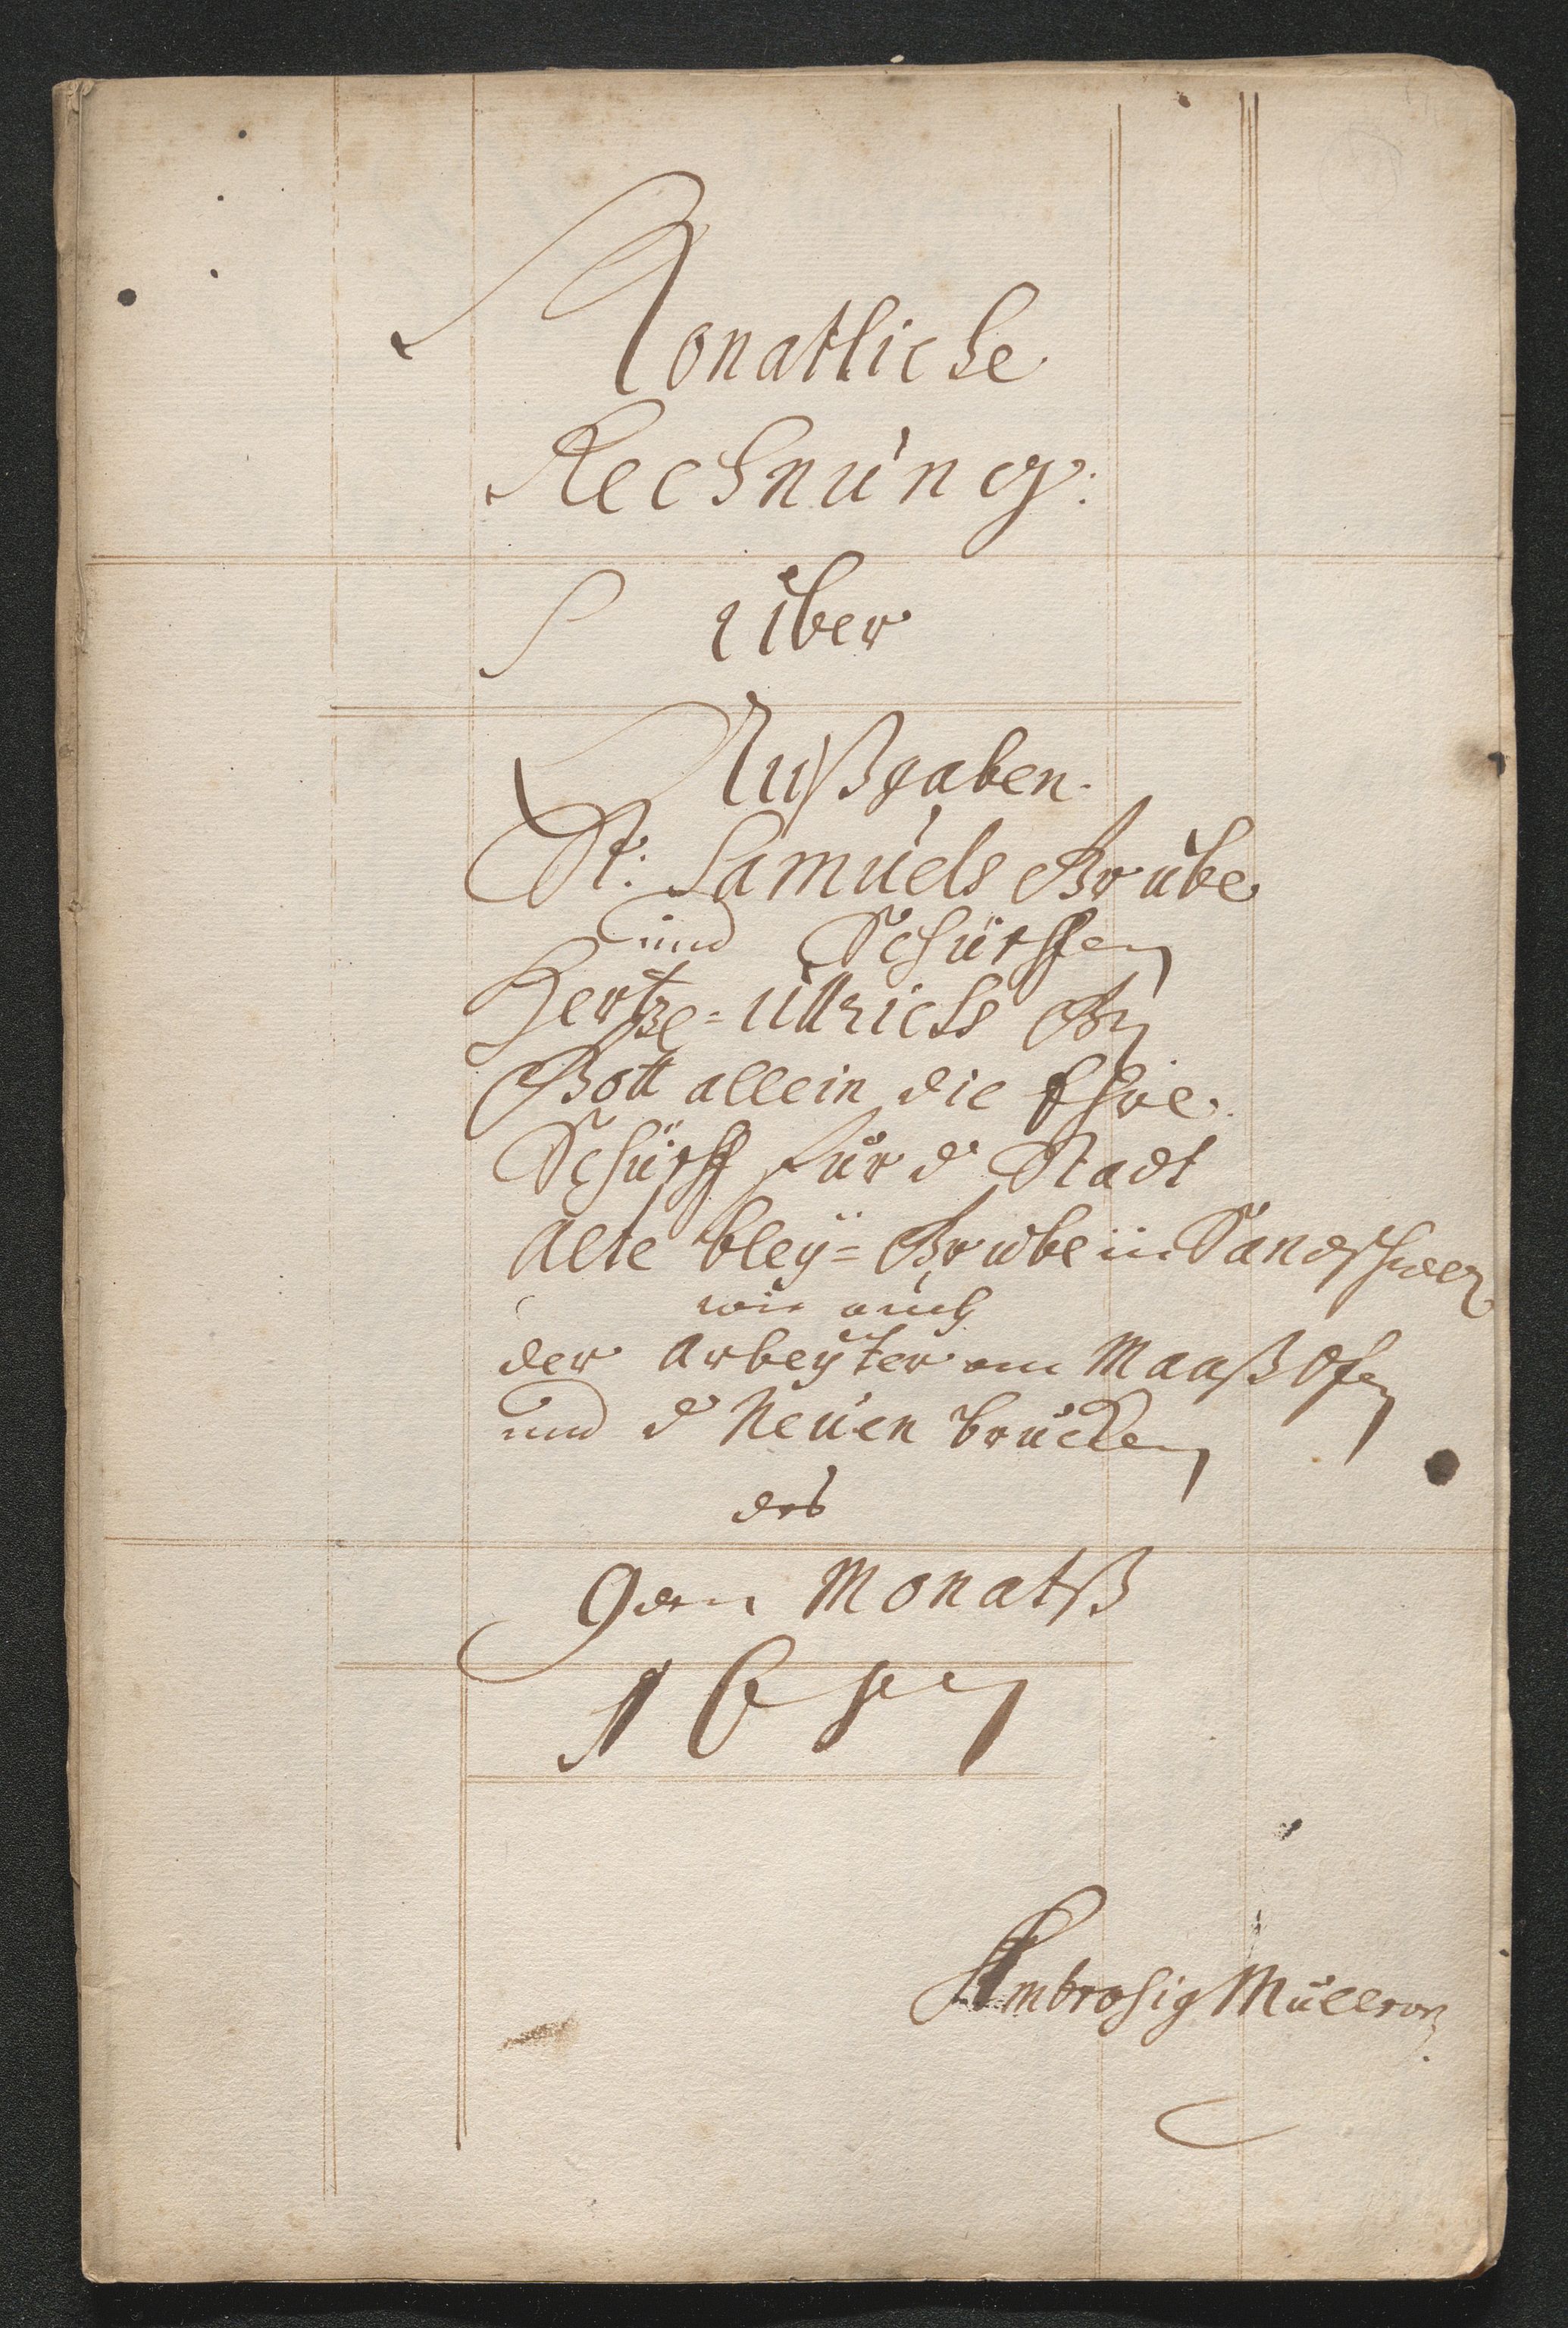 Monatliche
Rechnung:
über
Außgaben.
St: Samuels Grube
und Schürffen
Hertzg= Ullrichs Gr
Gott allein die Ehre.
Schürff für d Stadt
Alte bley= Grube in
wie auch
der Arbeyter am Maaß Ofen
und d Neüen brücken
des
9den Monatß
Ambrosig Müller